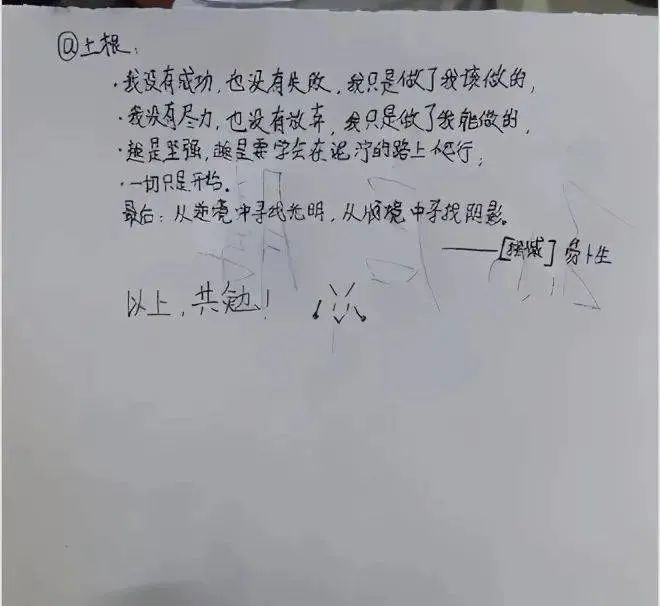 @土根:
·我没有成功,也没有失败,我只是做了我该做的,
·我没有尽力,也没有放弃,我只是做了我能做的,
·越是坚强,越是要学会在泥泞的路上爬行;
·一切只是开始。
最后:从逆境中寻找光明,从顺境中寻找阴影。
——[挪威]易卜生
以上,共勉!